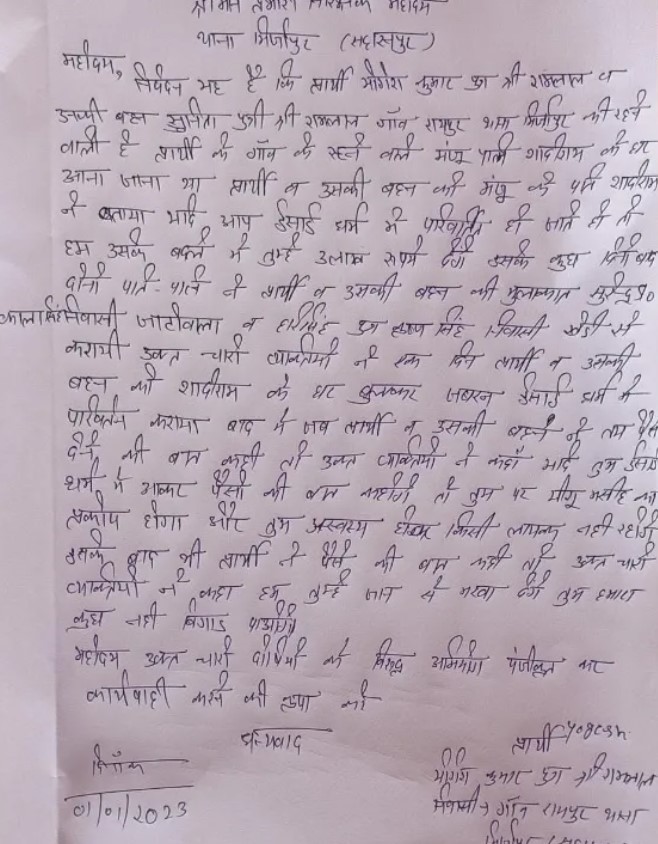 श्रीमान प्रभारी निरीक्षक महोदय
थाना मिर्जापुर (सहारनपुर)
महोदय,
निवेदन यह है कि प्रार्थी योगेश कुमार पुत्र श्री रामलाल व
उसकी बहन सुनिता पुत्री श्री रामलाल गाँव रायपुर थाना मिर्जापुर की रहने
वाली है प्रार्थी के गाँव के रहने वाले मंजू पत्नी शादीराम के घर
आना जाना था प्रार्थी व उसकी बहन को मंजू के पति शादीराम
ने बताया यदि आप ईसाई धर्म मे परिवर्तित हो जाते हो तो
हम उसके बदले मे तुम्हे 3 लाख रूपये देंगे इसके कुछ दिनो बाद
दोनो पति-पत्नि ने प्रार्थी व उसकी बहन की मुलाकात सुरेन्द्र पु०
काला सिंह निवासी जाटोवाला व हरिसिंह पुत्र सिंह निवासी खेडी से
करायी उक्त चारो व्यक्तियो ने एक दिन प्रार्थी व उसकी
बहन को शादीराम के घर बुलाकर जबरन ईसाई धर्म मे
परिवर्तन कराया बाद मे जब प्रार्थी व उसकी बहन ने तय पैसे
देने की बात कही तो उक्त व्यक्तियो ने कहाँ यदि तुम ईसाई
धर्म मे आकर पैसो की बात कहोगे तो तुम पर यीशू मसीह का
प्रकोप होगा और तुम अस्वस्थ होकर किसी लायक नही रहोगे
इसके बाद भी प्रार्थी ने पैसे की बात कही तो उक्त चारो
व्यक्तियो ने कहा हम तुम्हे जान से मरवा देंगे तुम हमारा
कुछ नही बिगाड पाओगे
महोदय उक्त चारो दोषियो के विरूद्ध अभियोग पंजीकृत कर
कार्यवाही करने की कृपा करे
धन्यवाद
दिनाँक
01/01/2023
प्रार्थी Yogesh
योगेश कुमार पुत्र श्री रामलाल
निवासी गाँव रायपुर थाना
मिर्जापुर